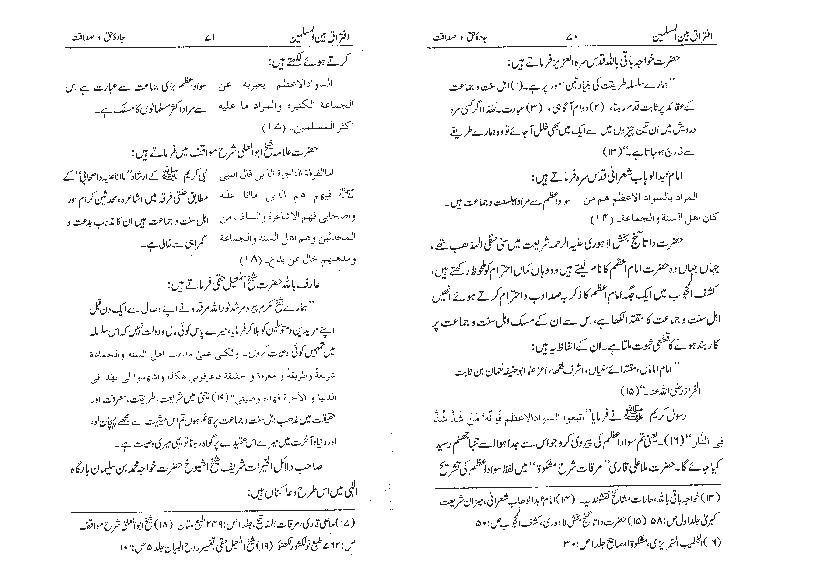 افتراق بین المسلمین ۷۰ جادۂ حق و صداقت
حضرت خواجہ باقی باللہ قدس سرہ العزیز فرماتے ہیں:
"ہمارے سلسلہ طریقت کی بنیاد تین امور پر ہے۔ (۱) اہل سنت و جماعت
کے عقائد پر ثابت قدم رہنا، (۲) دوام آگاہی، (۳) عبادت۔ لہٰذا اگر کسی مرد
درویش میں ان تین چیزوں میں سے ایک میں بھی خلل آجائے تو وہ ہمارے طریقے
سے خارج ہو جاتا ہے۔" (۱۳)
امام عبدالوہاب شعرانی قدس سرہ فرماتے ہیں:
المراد بالسواد الاعظم هم من سواد اعظم سے مراد اہلسنت و جماعت ہیں۔
كان اهل السنة والجماعة۔ (۱۴)
حضرت داتا گنج بخش لاہوری علیہ الرحمہ شریعت میں سنی حنفی المذہب تھے،
جہاں جہاں وہ حضرت امام اعظم کا نام لیتے ہیں وہ وہاں کمال احترام کو ملحوظ رکھتے ہیں،
کشف المحجوب میں ایک جگہ امام اعظم کا ذکر بصد ادب و احترام کرتے ہوئے انھیں
اہل سنت و جماعت کا مقتدا لکھا ہے، جس سے ان کے مسلک اہل سنت و جماعت پر
کاربند ہونے کا قطعی ثبوت ملتا ہے۔ ان کے الفاظ یہ ہیں:
"امام اماماں، مقتدائے سنیاں، اشرف فقہاء، اعز علماء ابوحنیفہ نعمان بن ثابت
الخزاز رضی اللہ عنہ۔" (۱۵)
رسول کریم ﷺ نے فرمایا "اتبعوا السواد الاعظم فانه من شذ شذ
فی النار" (۱۶)۔ یعنی تم سواد اعظم کی پیروی کرو جو اس سے جدا ہوا اسے تنہا جہنم رسید
کیا جائے گا۔ حضرت ملا علی قاری "مرقات شرح مشکوۃ" میں لفظ سواد اعظم کی تشریح
(۱۳) خواجہ باقی باللہ، حالات مشائخ نقشبندیہ۔ (۱۴) امام عبدالوہاب شعرانی، میزان شریعت
کبریٰ جلد اول ص: ۵۸ (۱۵) حضرت داتا گنج بخش لاہوری، کشف المحجوب ص: ۵۰
(۱۶) الخطیب التبریزی، مشکوۃ المصابیح جلد ۱ ص: ۳۰
افتراق بین المسلمین ۷۱ جادۂ حق و صداقت
کرتے ہوئے لکھتے ہیں:
السواد الاعظم يعبربه عن سواد اعظم بڑی جماعت سے عبارت ہے اس
الجماعة الكثيرة والمراد ما عليه سے مراد اکثر مسلمانوں کا مسلک ہے۔
اكثر المسلمين۔ (۱۷)
حضرت علامہ شیخ ابو العلی شرح مواقف میں فرماتے ہیں:
اما الفرقة الناجية الذين قال النبي نبی کریم ﷺ کے ارشاد "ما انا علیہ و اصحابی" کے
ﷺ فيهم هم الذين ماانا عليه مطابق جنتی فرقہ میں اشاعرہ، محدثین کرام اور
واصحابي فهم الاشاعرة والسلف من اہل سنت و جماعت ہیں ان کا مذہب بدعت و
المحدثين وهم اهل السنة والجماعة گمراہی سے خالی ہے۔
ومذهبهم خال عن بدع۔ (۱۸)
عارف باللہ حضرت شیخ اسمٰعیل حقی فرماتے ہیں:
"ہمارے شیخ مکرم پیر و مرشد نور اللہ مرقدہ نے اپنے وصال سے ایک دن قبل
اپنے مریدین و متوسلین کو بلا کر فرمایا، میرے پاس کوئی مال و دولت نہیں کہ اس سلسلہ
میں تمہیں کوئی وصیت کروں۔ ولكني على مذهب اهل السنة والجماعة
شريعة وطريقة و معرفة و حقيقة فاعرفوني هكذا واشهدوا لي بهذا في
الدنيا و الآخرة فهذه وصيتي" (۱۹) یعنی میں شریعت، طریقت، معرفت اور
حقیقت میں مذہب اہل سنت و جماعت پر قائم ہوں تم اس حیثیت سے مجھے پہچانو اور
دنیا و آخرت میں میرے اس عقیدے پر گواہ رہنا تو یہی میری وصیت ہے۔
صاحب دلائل الخیرات شریف شیخ الشیوخ حضرت خواجہ محمد بن سلیمان بارگاہ
الٰہی میں اس طرح دعا کناں ہیں:
(۱۷) ملا علی قاری، مرقات المفاتیح، جلد ۱ ص: ۲۴۹ طبع ملتان (۱۸) شیخ ابو العلی شرح مواقف
ص: ۷۶۲ طبع نولکشور لکھنؤ (۱۹) شیخ اسمٰعیل حقی، تفسیر روح البیان جلد ۵ ص: ۱۰۶